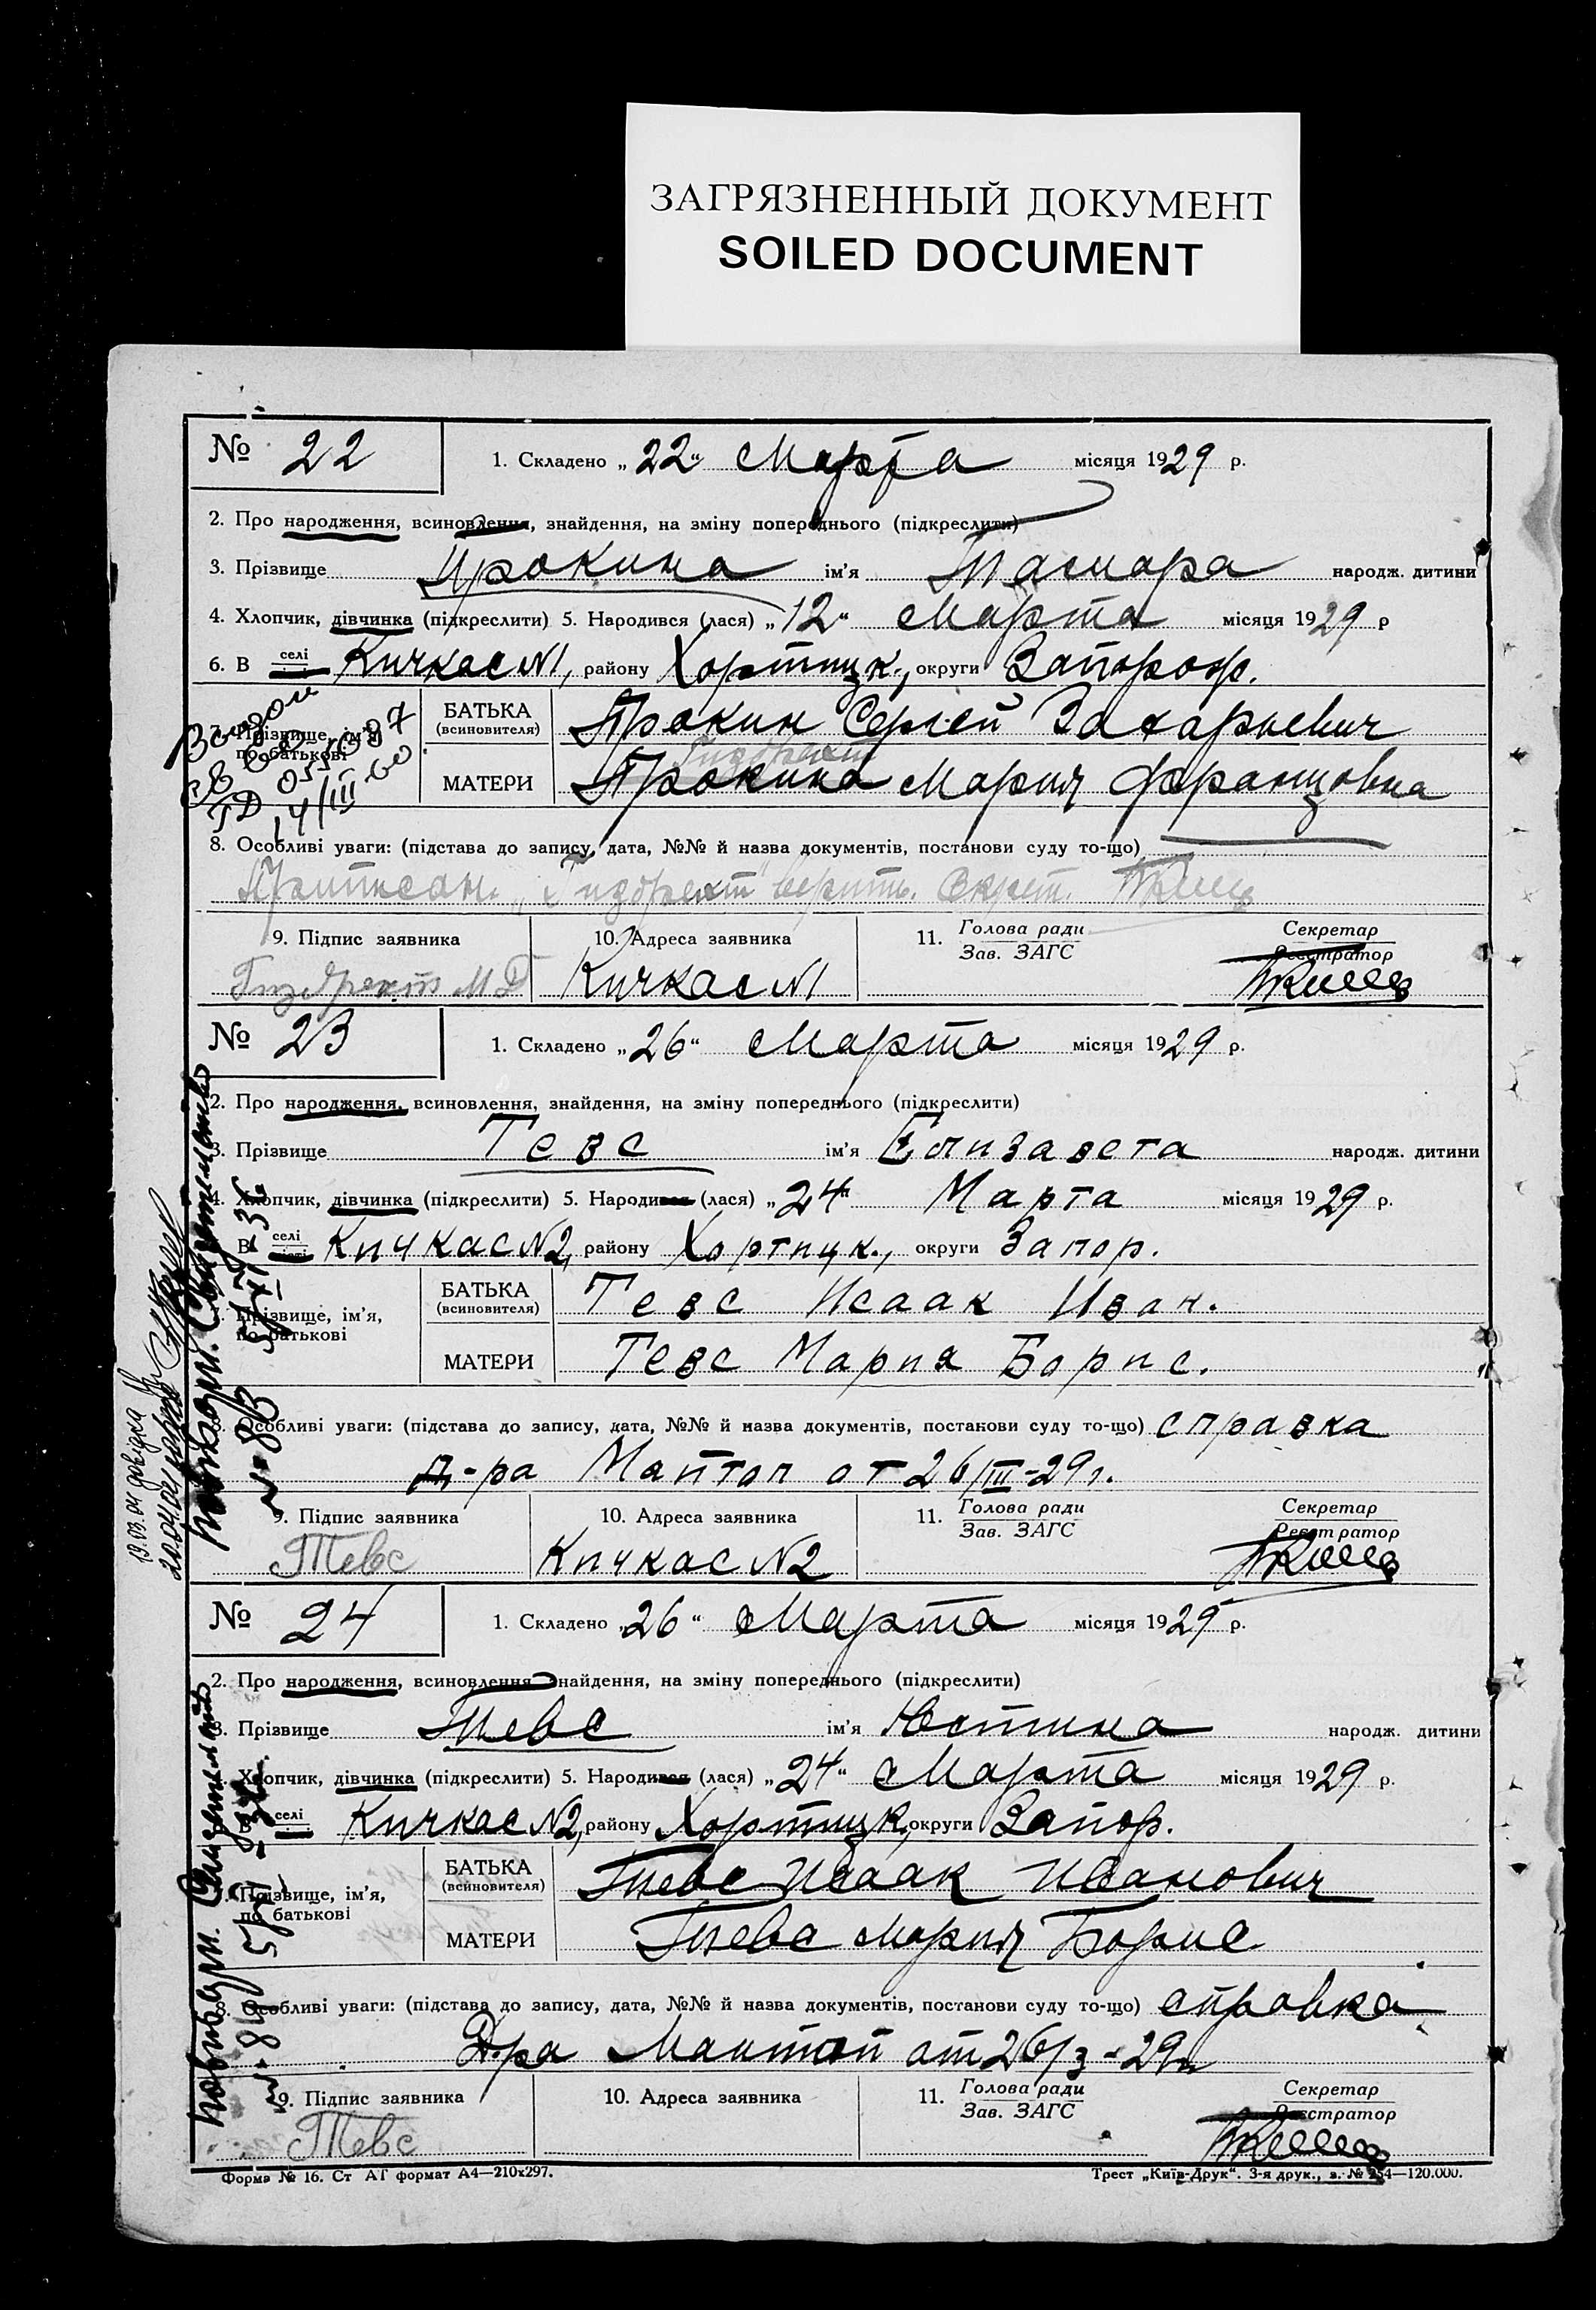 ЗАГРЯЗНЕННЫЙ ДОКУМЕНТ
SOILED DOCUMENT
№ 22
1. Складено „22“ Марта місяця 1929 р.
2. Про народження, всиновлення, знайдення, на зміну попереднього (підкреслити)
3. Прізвище Прокина ім'я Тамара народж. дитини
4. Хлопчик, дівчинка (підкреслити) 5. Народився (лася) „12“ Марта місяця 1929 р
6. В селі Кичкас N1, району Хортицк., округи Запорож.
7. Прізвище, ім'я, по батькові
БАТЬКА (всиновителя) Прокин Сергей Захарьевич
Гизбрехт
МАТЕРИ Прокина Мария Францовна
8. Особливі уваги: (підстава до запису, дата, №№ й назва документів, постанови суду то-що)
„Гизбрехт“ верить. Секрет.
9. Підпис заявника 10. Адреса заявника 11. Голова ради Зав. ЗАГС Секретар Реєстратор
Гизбрехт М Кичкас N1
№ 23
1. Складено „26“ Марта місяця 1929 р.
2. Про народження, всиновлення, знайдення, на зміну попереднього (підкреслити)
3. Прізвище Тевс ім'я Елизавета народж. дитини
4. Хлопчик, дівчинка (підкреслити) 5. Народився (лася) „24“ Марта місяця 1929 р.
В селі Кичкас N2, району Хортицк., округи Запор.
Прізвище, ім'я, по батькові
БАТЬКА (всиновителя) Тевс Исаак Иван.
МАТЕРИ Тевс Мария Борис.
Особливі уваги: (підстава до запису, дата, №№ й назва документів, постанови суду то-що) справка
д-ра от 26/III-29г.
9. Підпис заявника 10. Адреса заявника 11. Голова ради Зав. ЗАГС Секретар Реєстратор
Тевс Кичкас N2
№ 24
1. Складено „26“ Марта місяця 1929 р.
2. Про народження, всиновлення, знайдення, на зміну попереднього (підкреслити)
3. Прізвище Тевс ім'я Юстина народж. дитини
Хлопчик, дівчинка (підкреслити) 5. Народився (лася) „24“ Марта місяця 1929 р.
В селі Кичкас N2, району Хортицк, округи Запор.
Прізвище, ім'я, по батькові
БАТЬКА (всиновителя) Тевс Исаак Иванович
МАТЕРИ Тевс Мария Борис
8. Особливі уваги: (підстава до запису, дата, №№ й назва документів, постанови суду то-що) справка
Д-ра от 26/3-29г
9. Підпис заявника 10. Адреса заявника 11. Голова ради Зав. ЗАГС Секретар Реєстратор
Тевс
Форма № 16. Ст АГ формат А4—210х297.
Трест „Київ-Друк“. 3-я друк., з. № 254—120.000.